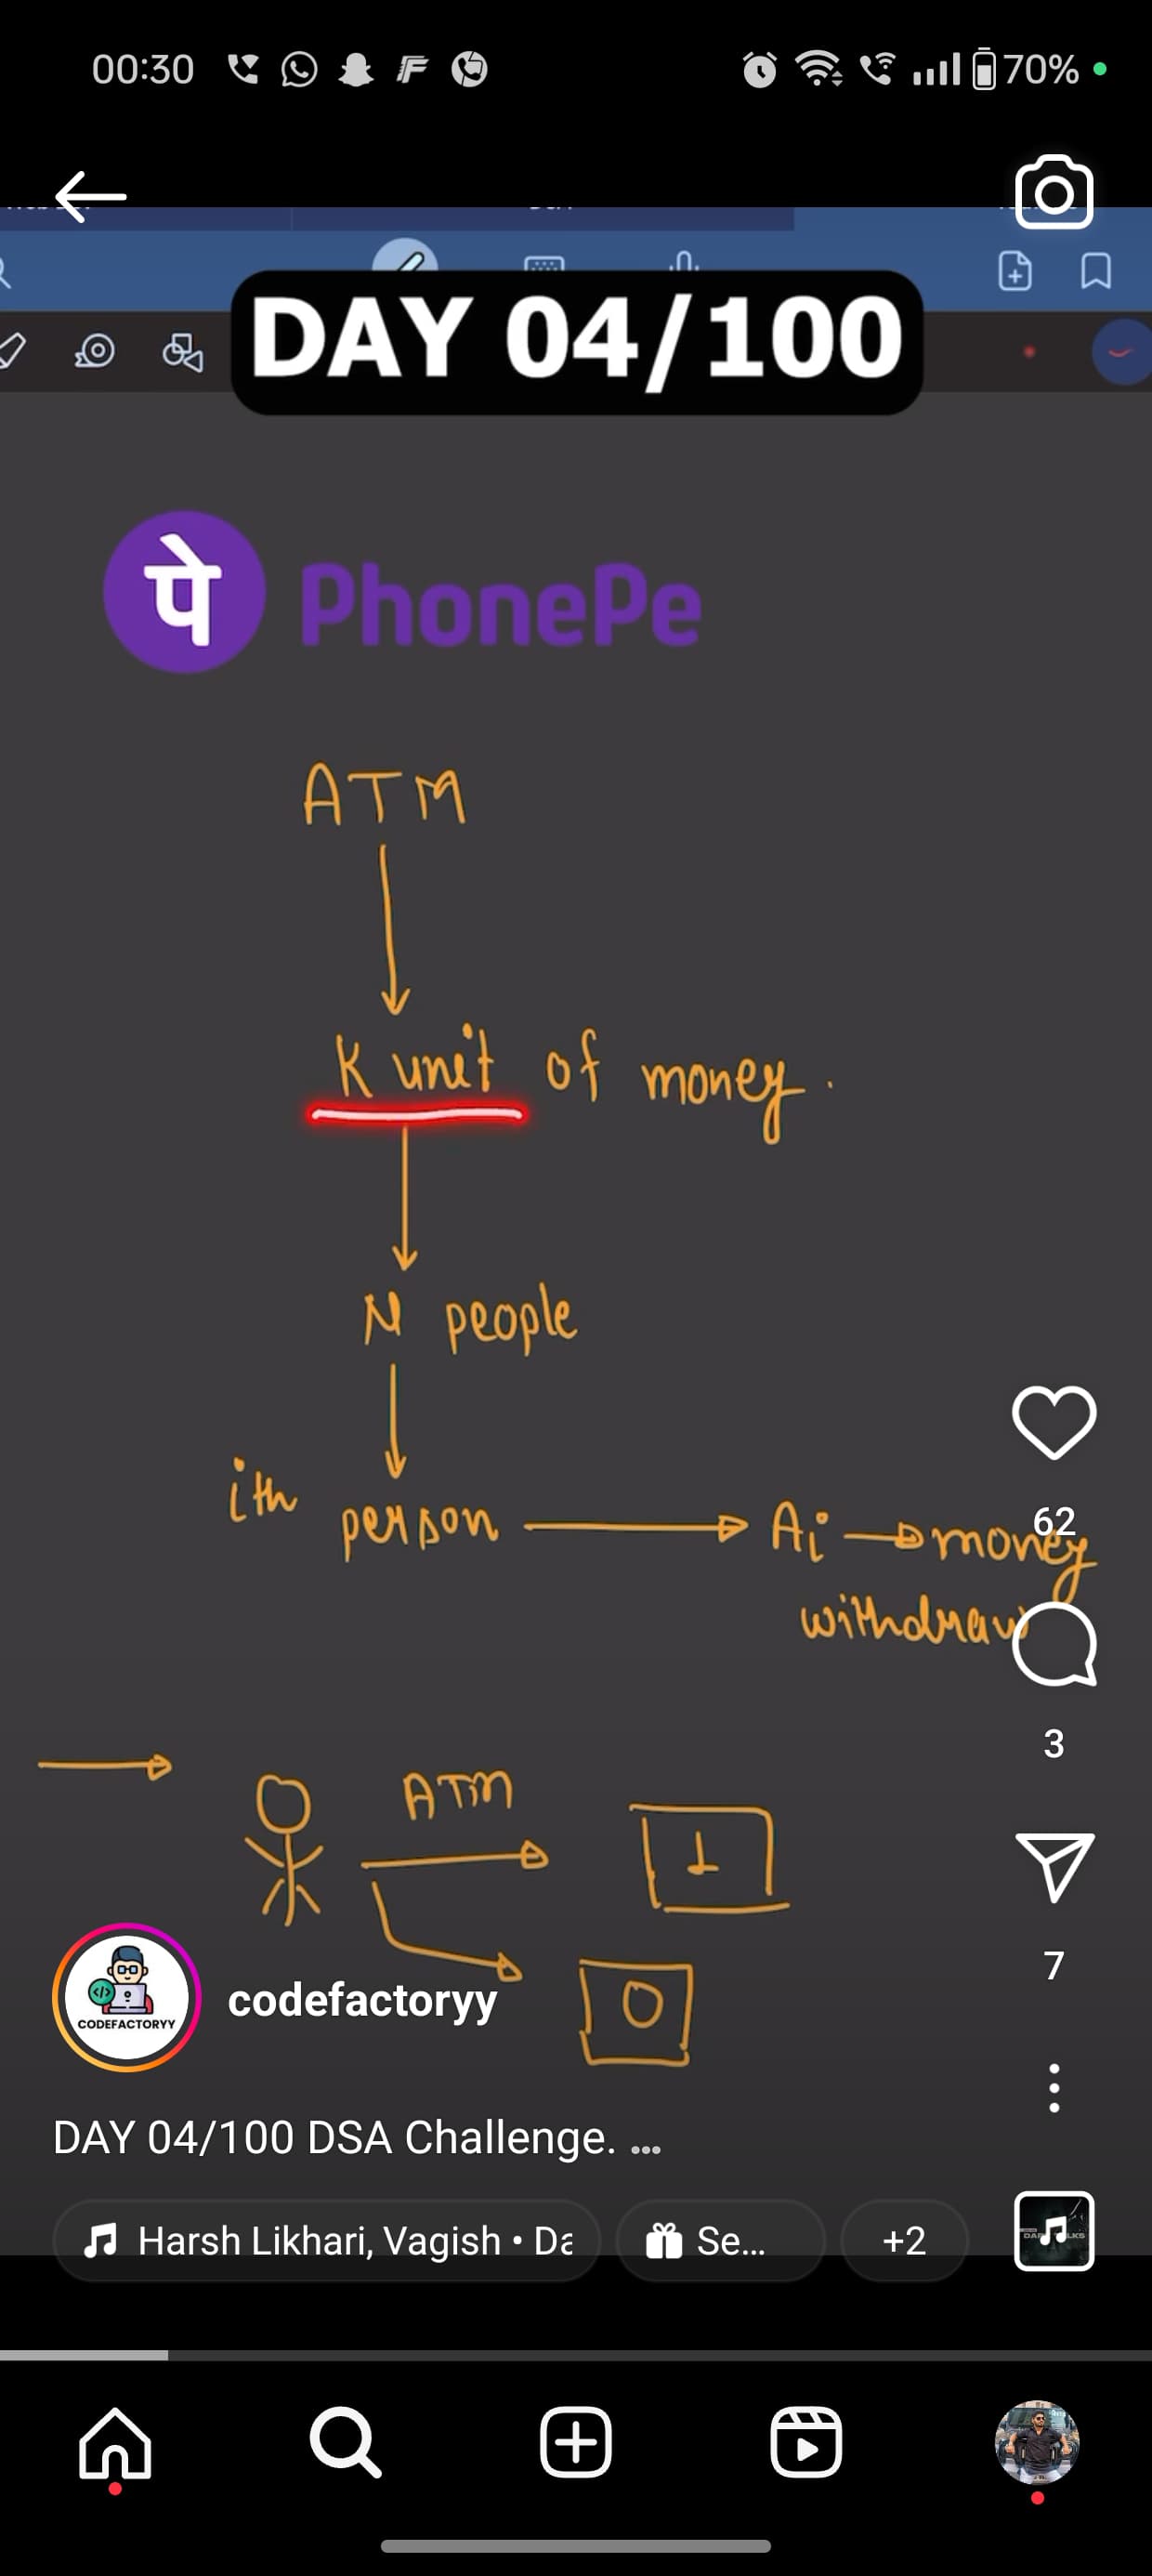 00:30 70%
DAY 04/100
पे PhonePe
ATM
K unit of money.
N people
ith person Ai money
withdraw
62
3
ATM
1
7
0
CODEFACTORYY
codefactoryy
DAY 04/100 DSA Challenge. ...
Harsh Likhari, Vagish • Da Se... +2